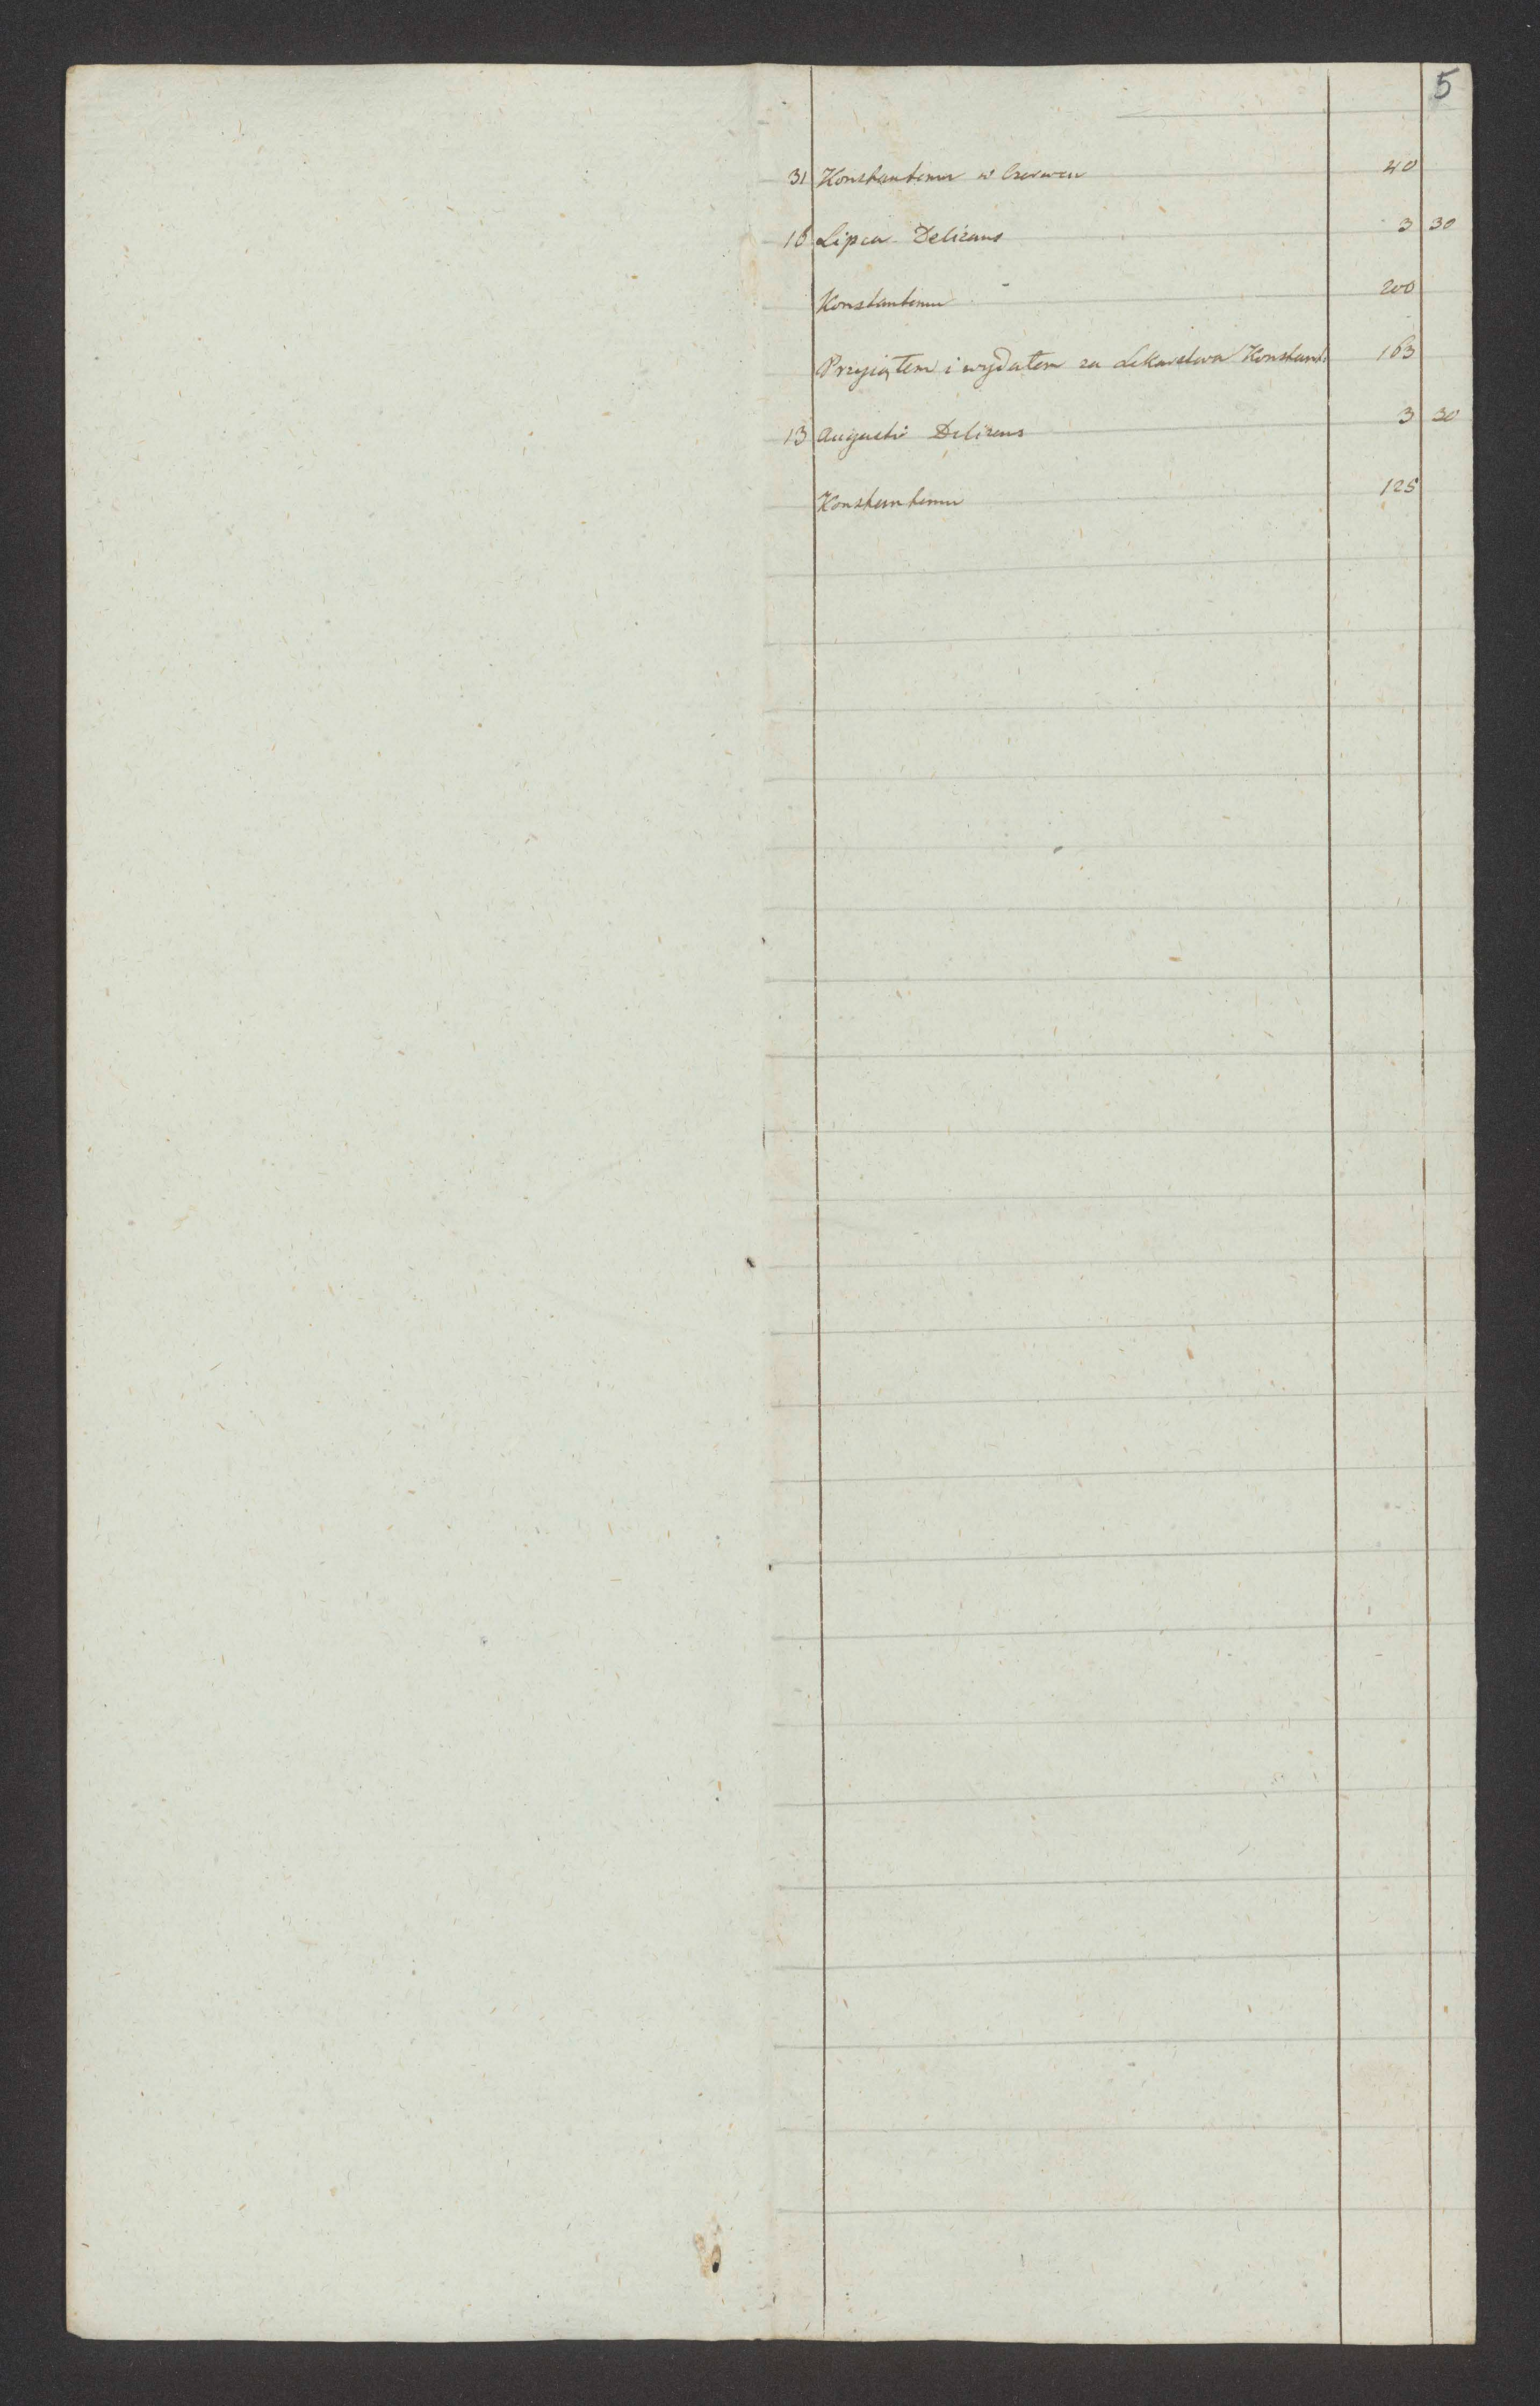 5
31 Konstantemu w Czerwcu 40
16 Lipca Delizans 3 30
Konstantemu 200
Przyiątem i wydałem za Lekarstwa Konstant: 163
13 Augusti Delizens 3 30
Konstantemu 125